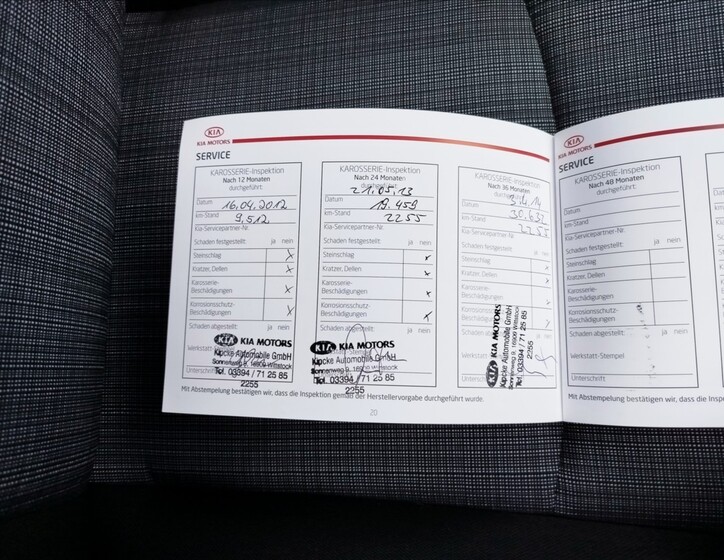 KIA
KIA MOTORS
SERVICE
KAROSSERIE-Inspektion
Nach 12 Monaten
durchgeführt:
Datum 16.04.2012
km-Stand 9.512
Kia-Servicepartner-Nr.
Schaden festgestellt: ja nein
Steinschlag x
Kratzer, Dellen x
Karosserie-
Beschädigungen x
Korrosionsschutz-
Beschädigungen x
Schaden abgestellt: ja nein
KIA MOTORS
Küpcke Automobile GmbH
Sonnenweg 9, 16909 Wittstock
Tel. 03394 / 71 25 85
2255
KAROSSERIE-Inspektion
Nach 24 Monaten
durchgeführt:
21.05.13
Datum 19.459
km-Stand 2255
Kia-Servicepartner-Nr.
Schaden festgestellt: ja nein
Steinschlag x
Kratzer, Dellen x
Karosserie-
Beschädigungen x
Korrosionsschutz-
Beschädigungen x
Schaden abgestellt: ja nein
KIA MOTORS
Küpcke Automobile GmbH
Sonnenweg 9, 16909 Wittstock
Tel. 03394 / 71 25 85
2255
KAROSSERIE-Inspektion
Nach 36 Monaten
durchgeführt:
Datum
km-Stand 30.632
Kia-Servicepartner-Nr. 2255
Schaden festgestellt: ja nein
Steinschlag x
Kratzer, Dellen x
Karosserie-
Beschädigungen x
Korrosionsschutz-
Beschädigungen x
KIA MOTORS
Küpcke Automobile GmbH
Sonnenweg 9, 16909 Wittstock
Tel. 03394 / 71 25 85
2255
Mit Abstempelung bestätigen wir, dass die Inspektion gemäß der Herstellervorgabe durchgeführt wurde.
20
KIA
KIA MOTORS
SERVICE
KAROSSERIE-Inspektion
Nach 48 Monaten
durchgeführt:
Datum
km-Stand
Kia-Servicepartner-Nr.
Schaden festgestellt: ja nein
Steinschlag
Kratzer, Dellen
Karosserie-
Beschädigungen
Korrosionsschutz-
Beschädigungen
Schaden abgestellt: ja nein
Werkstatt-Stempel
Unterschrift
Mit Abstempelung bestätigen wir, dass die Inspe